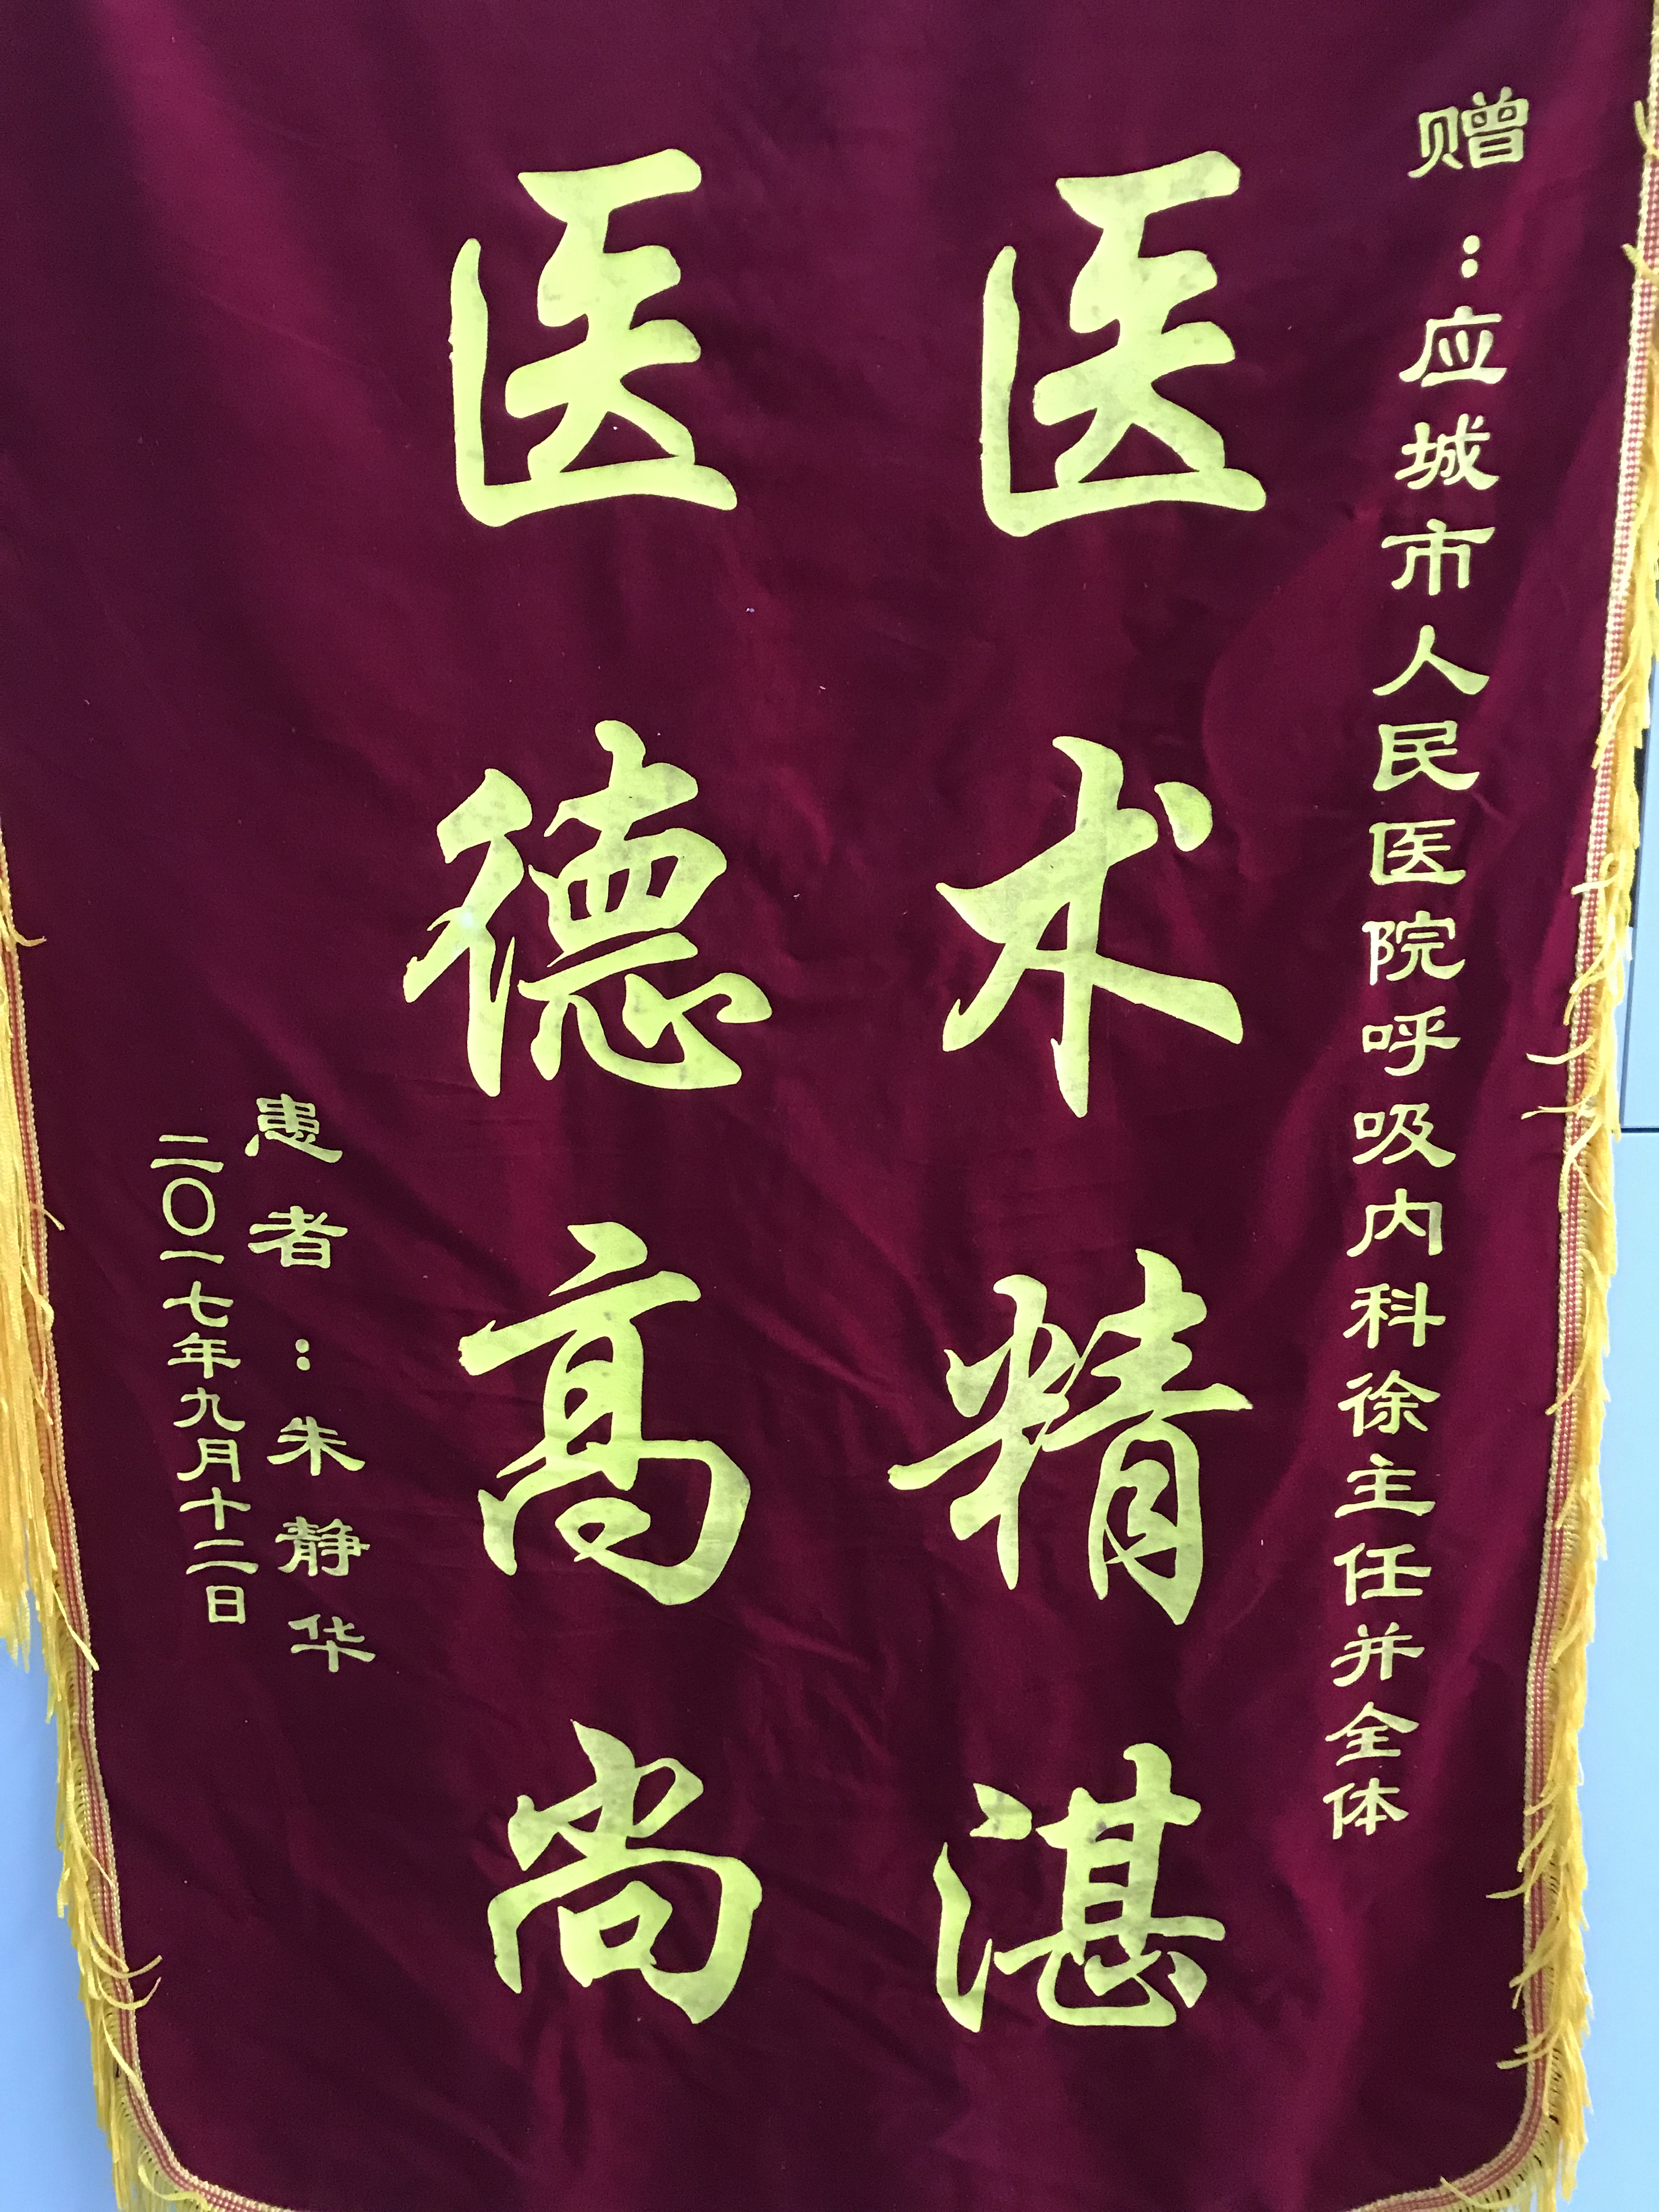 赠：应城市人民医院呼吸内科徐主任并全体
医术精湛
医德高尚
患者：朱静华
二〇一七年九月十二日